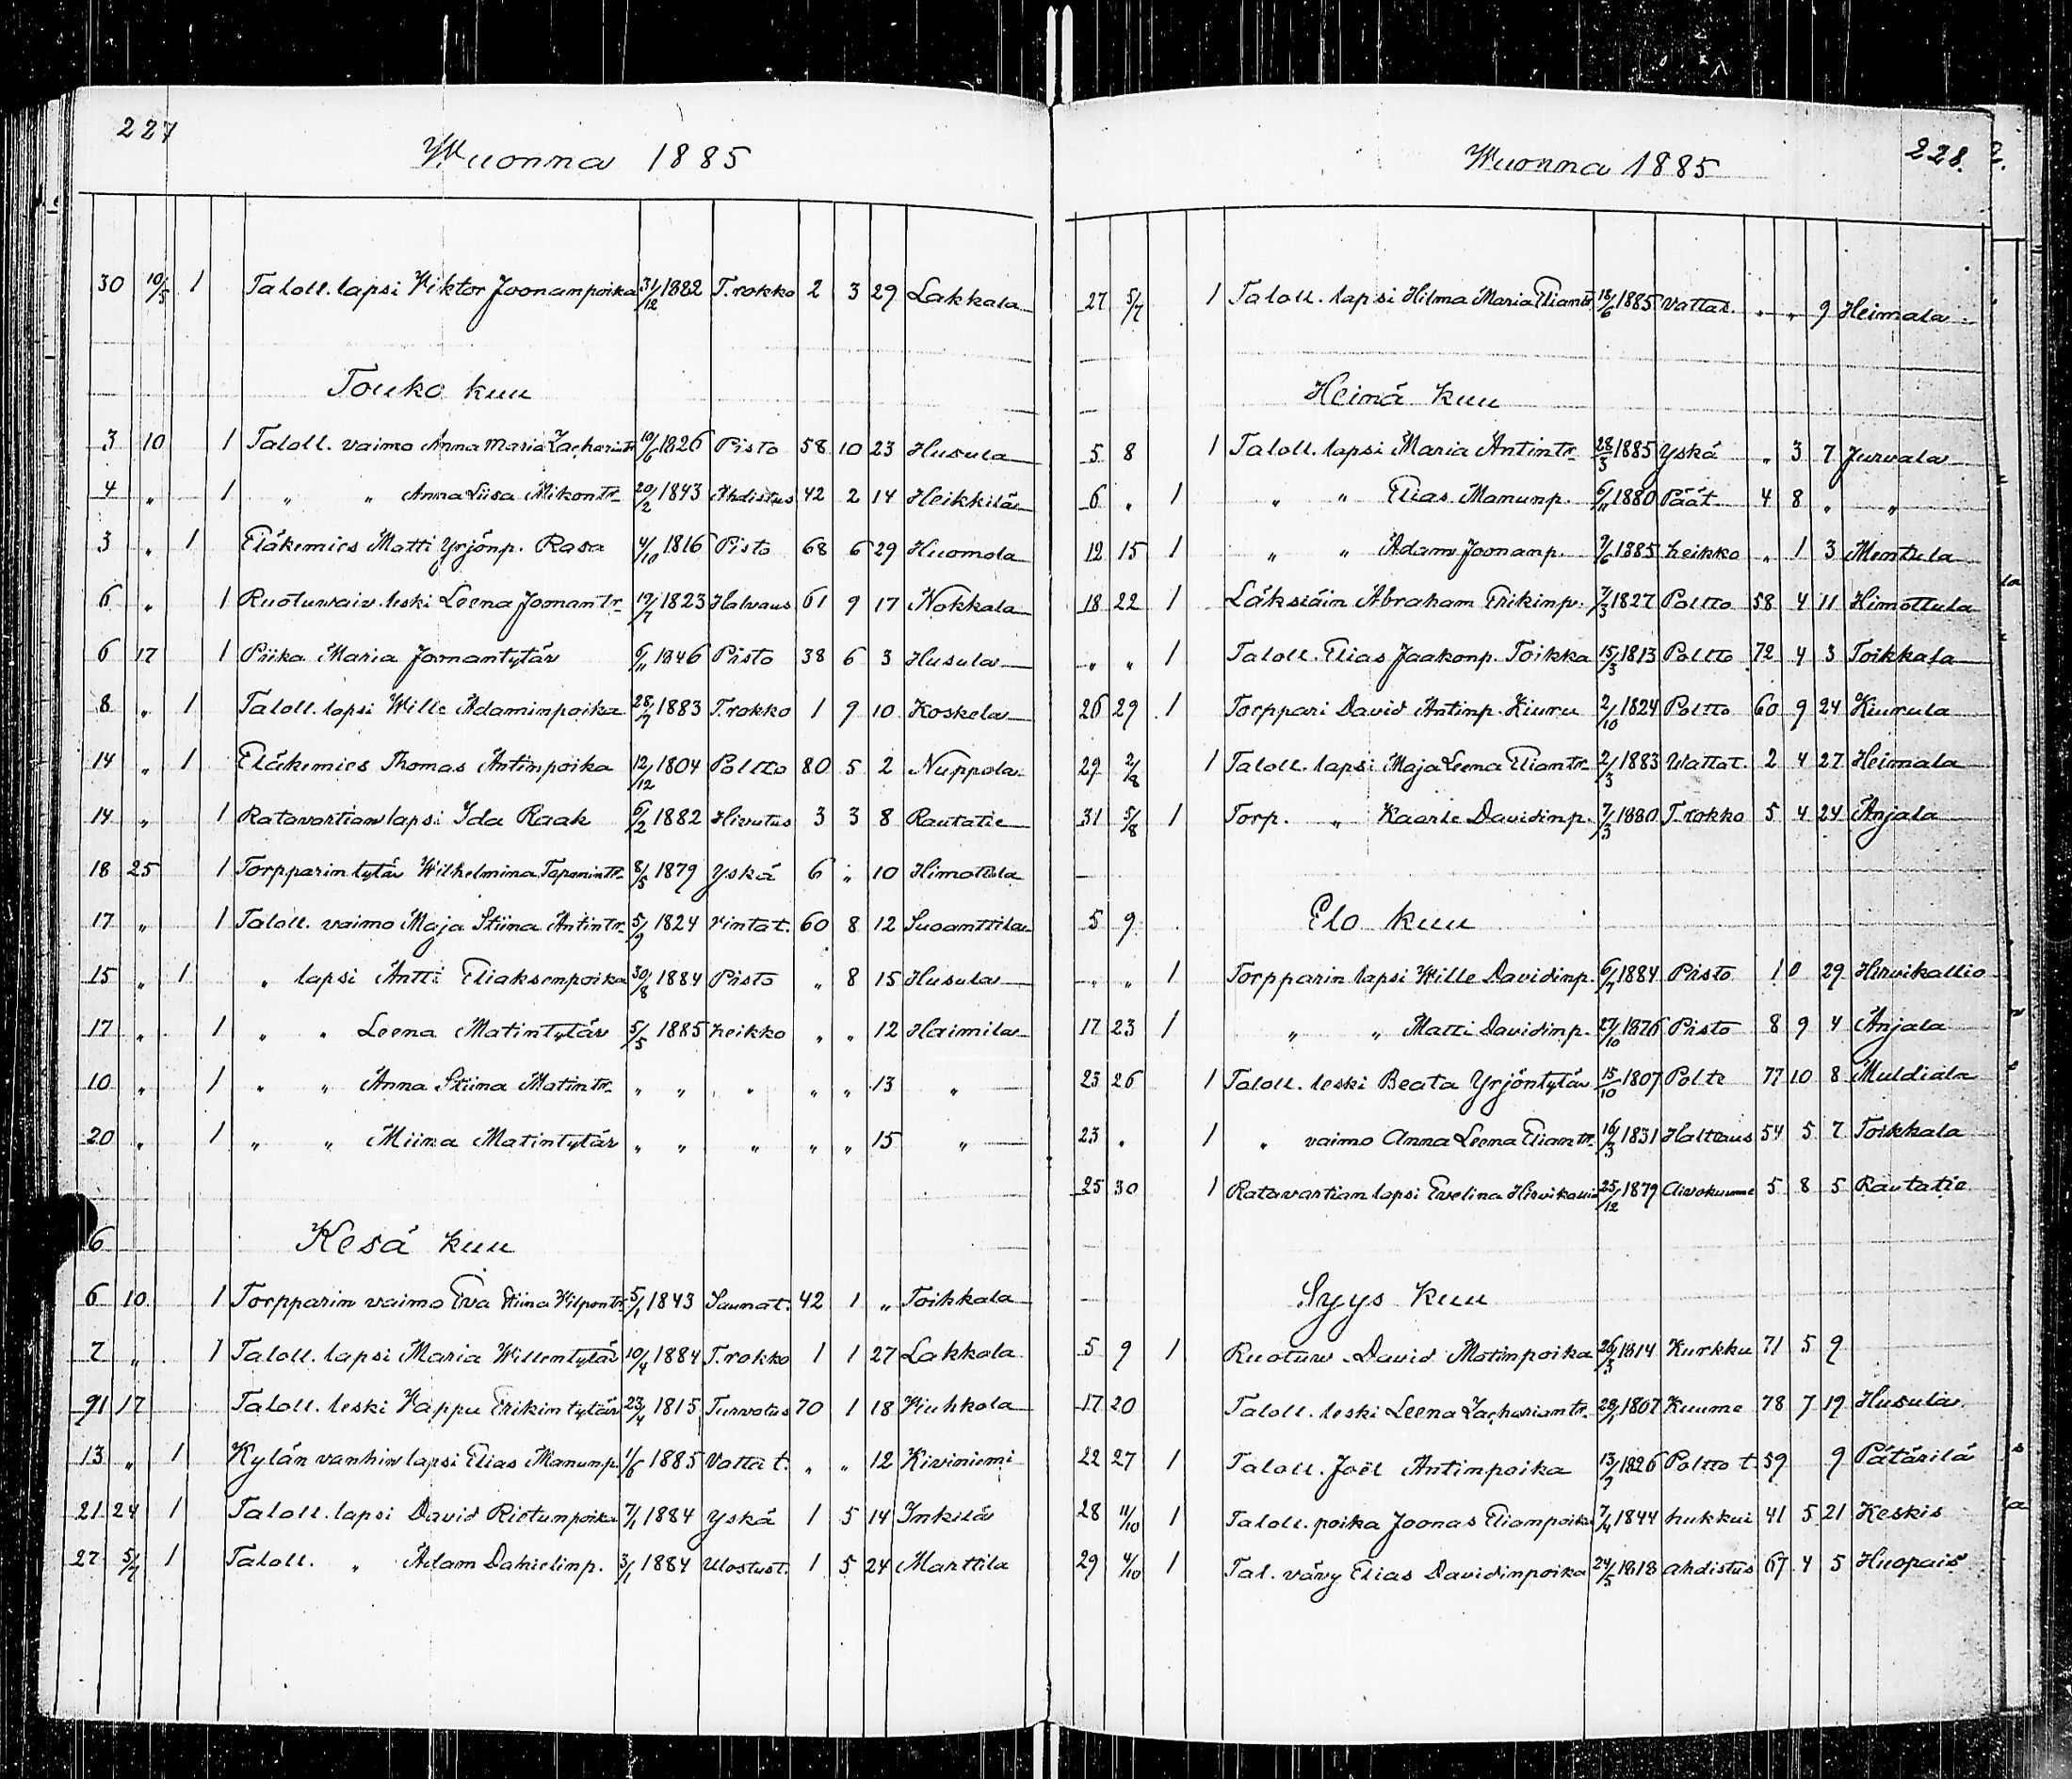 227
Wuonna 1885
30 10/5 1 Taloll. lapsi Wiktor Joonanpoika 31/12 1882 T.rokko 2 3 29 Lakkala
Touko kuu
3 10 1 Taloll. vaimo Anna Maria Zachariatr 10/6 1826 Pisto 58 10 23 Husula
4 " 1 " " Anna Liisa Mikontr. 20/2 1843 Ahdistus 42 2 14 Heikkilä
3 " 1 Eläkemies Matti Yrjönp. Rasa 4/10 1816 Pisto 68 6 29 Huomola
6 " 1 Ruotuwaiv. leski Leena Joonantr. 19/7 1823 Halvaus 61 9 17 Nokkala
6 17 1 Piika Maria Joonantytär 6/11 1846 Pisto 38 6 3 Husula
8 " 1 Taloll. lapsi Wille Adaminpoika 28/7 1883 T.rokko 1 9 10 Koskela
14 " 1 Eläkemies Thomas Antinpoika 12/12 1804 Poltto 80 5 2 Nuppola
14 " 1 Ratavartian lapsi Ida Raak 6/2 1882 Hivutus 3 3 8 Rautatie
18 25 1 Torpparin tytär Wilhelmina Tapanintr. 8/5 1879 Yskä 6 " 10 Himottula
17 " 1 Taloll. vaimo Maja Stiina Antintr. 5/9 1824 rintat. 60 8 12 Suoanttila
15 " 1 " lapsi Antti Eliaksenpoika 30/8 1884 Pisto " 8 15 Husula
17 " 1 " " Leena Matintytär 5/5 1885 heikko " " 12 Haimila
10 " 1 " " Anna Stiina Matintr. " " " " " 13 "
20 " 1 " " Miina Matintytär " " " " " 15 "
6 Kesä kuu
6 10 1 Torpparin vaimo Eva Stiina Wilpontr. 5/1 1843 Saunat. 42 1 " Toikkala
7 " 1 Taloll. lapsi Maria Willentytär 10/4 1884 T.rokko 1 1 27 Lakkala
91 17 Taloll. leski Wappu Erikintytär 23/4 1815 Turvotus 70 1 18 Kiuhkola
13 " 1 Kylän vanhin lapsi Elias Manunp. 1/6 1885 Vatta t. " " 12 Kiviniemi
21 24 1 Taloll. lapsi David Rietunpoika 7/1 1884 Yskä 1 5 14 Inkilä
27 5/7 1 Taloll. " Adam Danielinp. 3/1 1884 Ulostust. 1 5 24 Marttila
Wuonna 1885
228.
27 5/7 1 Taloll. lapsi Hilma Maria Eliantr. 18/6 1885 vattas. " " 9 Heimala
Heinä kuu
5 8 1 Taloll. lapsi Maria Antintr. 28/3 1885 Yskä " 3 7 Jurvala
6 " 1 " " Elias Manunp. 6/11 1880 Päät. 4 8 " "
12 15 1 " " Adam Joonanp. 9/6 1885 heikko " 1 3 Mentula
18 22 1 Läksiäin Abraham Erikinp. 7/3 1827 Poltto 58 4 11 Himottula
" " 1 Taloll. Elias Jaakonp. Toikka 15/3 1813 Poltto 72 4 3 Toikkala
26 29 1 Torppari David Antinp. Kiuru 2/10 1824 Poltto 60 9 24 Kiurula
29 2/8 1 Taloll. lapsi Maja Leena Eliantr. 2/3 1883 Wattat. 2 4 27 Heimala
31 5/8 1 Torp. " Kaarle Davidinp. 7/3 1880 T.rokko 5 4 24 Anjala
5 9 Elo kuu
" " 1 Torpparin lapsi Wille Davidinp. 6/7 1884 Pisto 1 0 29 Hirvikallio
17 23 1 " " Matti Davidinp. 27/10 1876 Pisto 8 9 4 Anjala
23 26 1 Taloll. leski Beata Yrjöntytär 15/10 1807 Polte 77 10 8 Muldiala
23 " 1 " vaimo Anna Leena Eliantr. 16/3 1831 Haltvaus 54 5 7 Toikkala
25 30 1 Ratavartian lapsi Evelina Hirvikallio 25/12 1879 Aivokuume 5 8 5 Rautatie
Syys kuu
5 9 1 Ruotuw. David Matinpoika 26/3 1814 Kurkku 71 5 9
17 20 Taloll. leski Leena Zachariantr. 28/1 1807 Kuume 78 7 19 Husula
22 27 1 Taloll. Joël Antinpoika 13/7 1826 Poltto t. 59 9 Pätärilä
28 11/10 1 Taloll. poika Joonas Elianpoika 7/4 1844 hukkui 41 5 21 Keskis
29 4/10 1 Tal. vävy Elias Davidinpoika 24/5 1818 ahdistus 67 4 5 Huopais